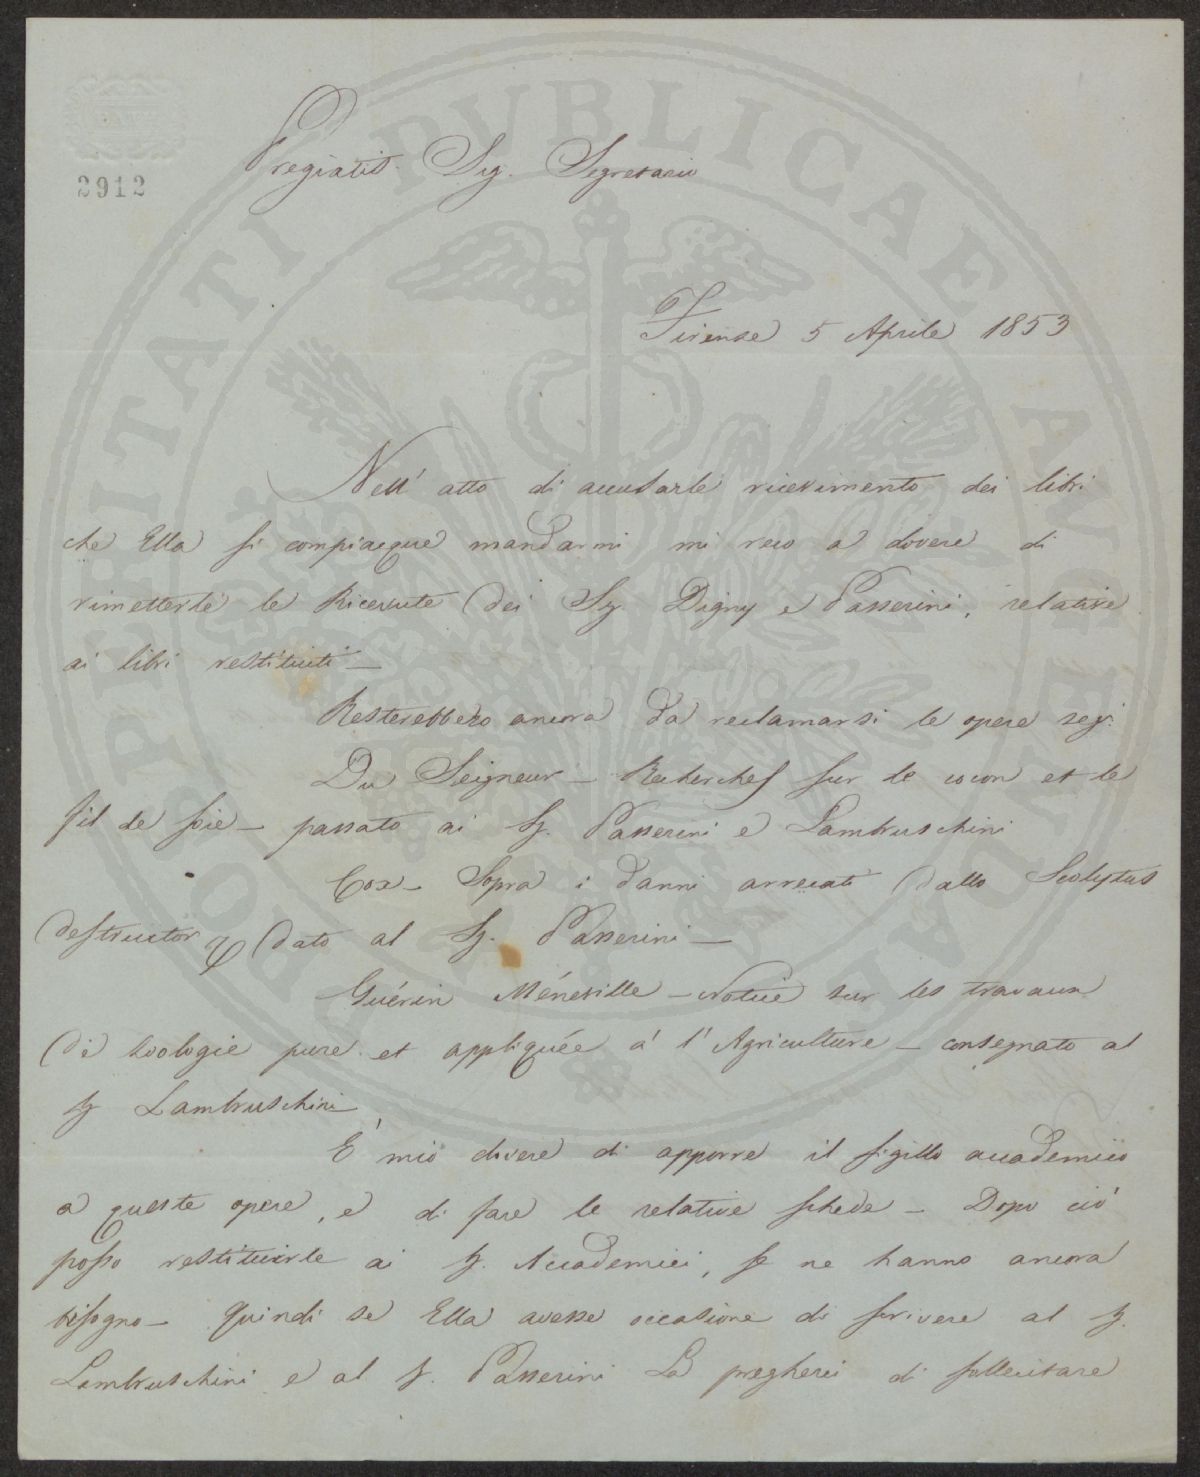 2912
Pregiatis. Sig. Segretario
Firenze 5 Aprile 1853
Nell' atto di accusarle ricevimento dei libri
che Ella si compiacque mandarmi mi reco a dovere di
rimetterle le Ricevute dei Sig. Digny e Passerini, relative
ai libri restituiti —
Resterebbero ancora da reclamarsi le opere seg:
Du Seigneur — Recherches sur le cocon et le
fil de soie — passato ai Sg. Passerini e Lambruschini
Cox — Sopra i danni arrecati dallo Scolytus
destructor, dato al Sg. Passerini —
Guérin Méneville — Notice sur les travaux
de zoologie pure et appliquée à l'Agriculture — consegnato al
Sg Lambruschini
È mio dovere di apporre il sigillo accademico
a queste opere, e di fare le relative schede — Dopo ciò
posso restituirle ai Sg. Accademici, se ne hanno ancora
bisogno — Quindi se Ella avesse occasione di scrivere al Sg.
Lambruschini e al Sg. Passerini La pregherei di sollecitare
PROSPERITATI PVBLICAE AVGENDAE